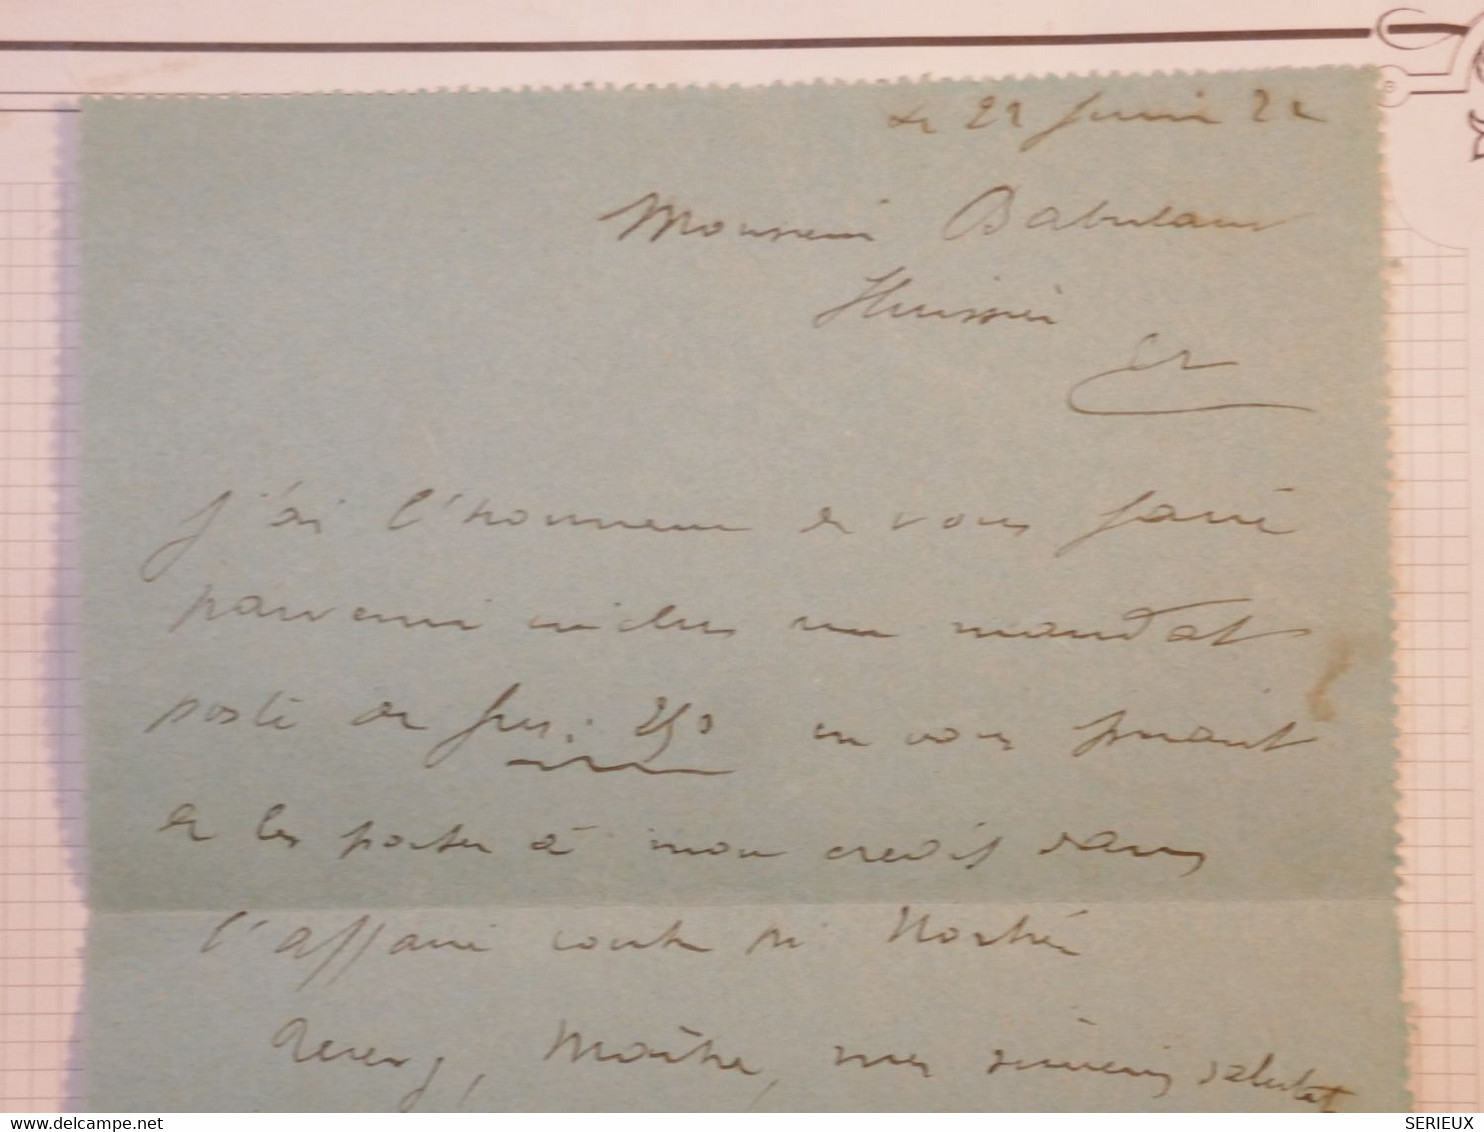 Le 21 Juin 22
Monsieur
Huissier
J'ai l'honneur de vous faire
parvenir inclus un mandat
poste de frs: 250 en vous priant
de les porter à mon crédit dans
l'affaire contre
Recevez, Maître, mes sincères salutat
SERIEUX